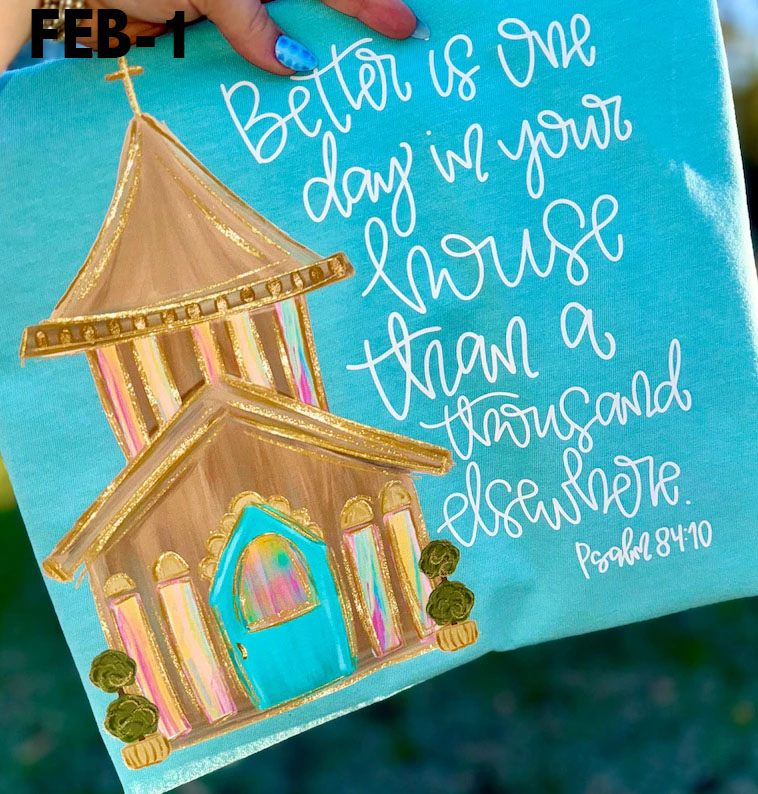 FEB-1
Better is one
day in your
house
than a
thousand
elsewhere.
Psalm 84:10